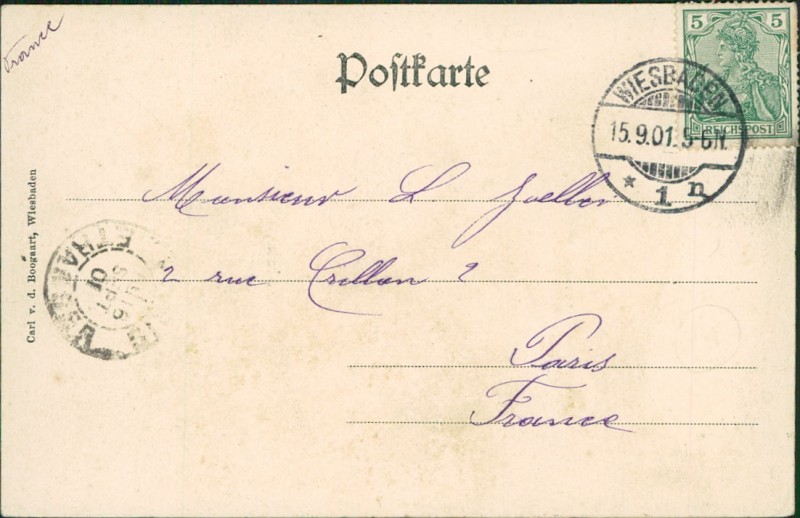 France
Postkarte
5 5
REICHSPOST
WIESBADEN
15.9.01. 5-6N.
* 1 n
Monsieur L
2 rue Crillon 2
Paris
France
SEPT
01
Carl v. d. Boogaart, Wiesbaden